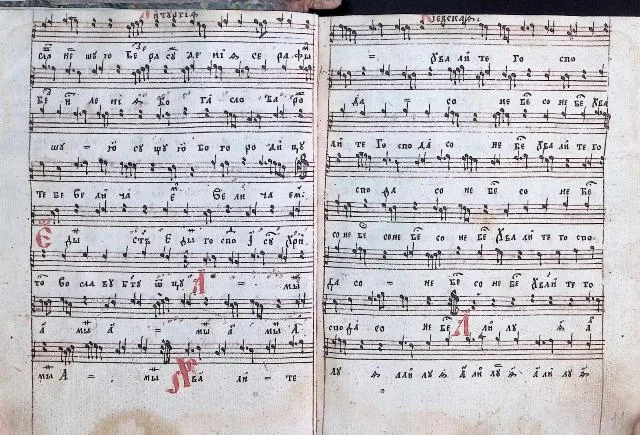 Литургиѧ
сла нѣ шу ю бе ра су де ни ѧ се ра фы
бе й ле ни ѧ бо га сло ва ро
шу = ю су щу ю бо го ро ди цу
те бе ве ли ча е ве ли ча ем:
Е ды стъ е ды го спо і су хри
то во сла ву бгу ѿ цу А = мы
а мы а мы а мы а
мы А = мы Хва ли = те
Кїевскаѧ:
= хва ли те го спо
да = со не бе со не бе хва
ли те го спо да со не бе хва ли те го
спо да со не бе со не бе
со не бе со не бе со не бе хва ли те го спо
да со = не бе со не бе хва ли те го
спо да со не бе А ли лу ѧ а
лу ѧ али лу ѧ а ли лу ѧ а ли лу ѧ